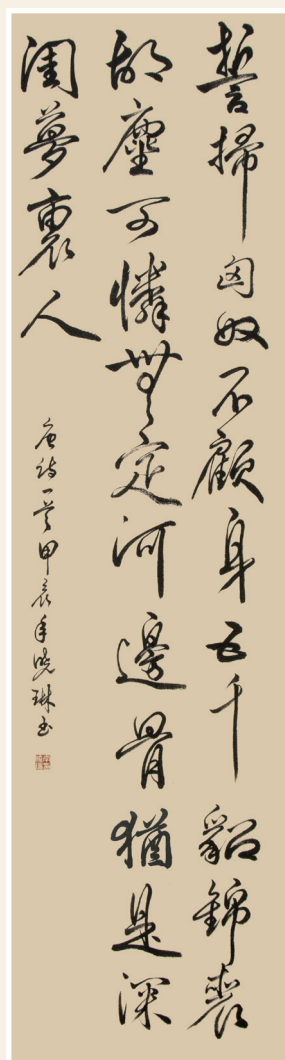 誓掃匈奴不顧身五千貂錦喪
胡塵可憐無定河邊骨猶是深
閨夢裏人
唐詩一首甲辰年曉琳書